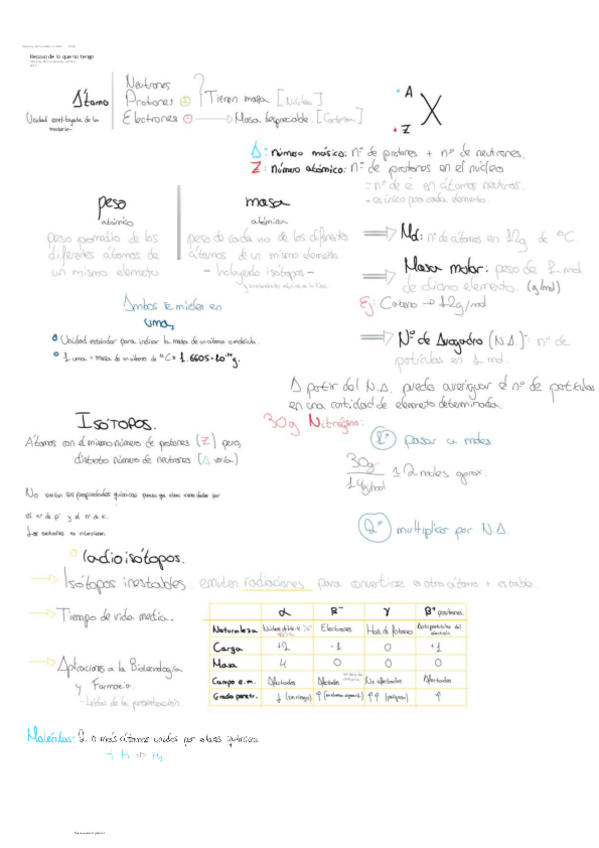 Repaso de lo que no tengo
Átomo
Unidad constituyente de la
materia
Neutrones
Protones +
Electrones - → Masa despreciable. [Corteza]
? Tienen masa [Núcleo]
A
X
Z
A: Número másico: nº de protones + nº de neutrones.
Z: Número atómico: nº de protones en el núcleo
= nº de e⁻ en átomos neutros.
- es único para cada elemento.
peso
atómico
peso promedio de los
diferentes átomos de
un mismo elemento
masa
atómica
peso de cada uno de los diferentes
átomos de un mismo elemento
- Incluyendo isótopos -
Ambos se miden en
uma,
Unidad estándar para indicar la masa de un átomo o molécula.
1 uma = Masa de un átomo de ¹²C = 1.6605·10⁻²⁴g.
⇒ Mol: nº de átomos en 12g de ¹²C
⇒ Masa molar: peso de 1 mol
de dicho elemento. (g/mol)
Ej: Carbono → 12g/mol
⇒ Nº de Avogadro (N.A.): nº de
partículas en 1 mol.
A partir del N.A. puedo averiguar el nº de partículas
en una cantidad de elemento determinada.
30g Nitrógeno:
1º pasar a moles
30g
14g/mol
≈ 2 moles aprox.
2º multiplicar por N.A.
ISÓTOPOS.
Átomos con el mismo número de protones (Z) pero
distinto número de neutrones (A varía)
No varían sus propiedades químicas porque estas vienen dadas por
el nº de p⁺ y el nº de e⁻.
Los neutrones no intervienen.
Radioisótopos.
→ Isótopos inestables: emiten radiaciones para convertirse en otro átomo + estable.
→ Tiempo de vida media.
→ Aplicaciones a la Biotecnología
y Farmacia.
- Leídas de la presentación.
α β⁻ γ β⁺ positrones.
Naturaleza Núcleos de He-4 Electrones Haz de fotones Antipartículas del electrón
Carga +2 -1 0 +1
Masa 4 0 0 0
Campo e.m. Afectados Afectados No afectados Afectados
Grado penetr. ↓ ↑ ↑↑ (peligroso) ↑
Moléculas: 2 o más átomos unidos por enlaces químicos
H H => H₂